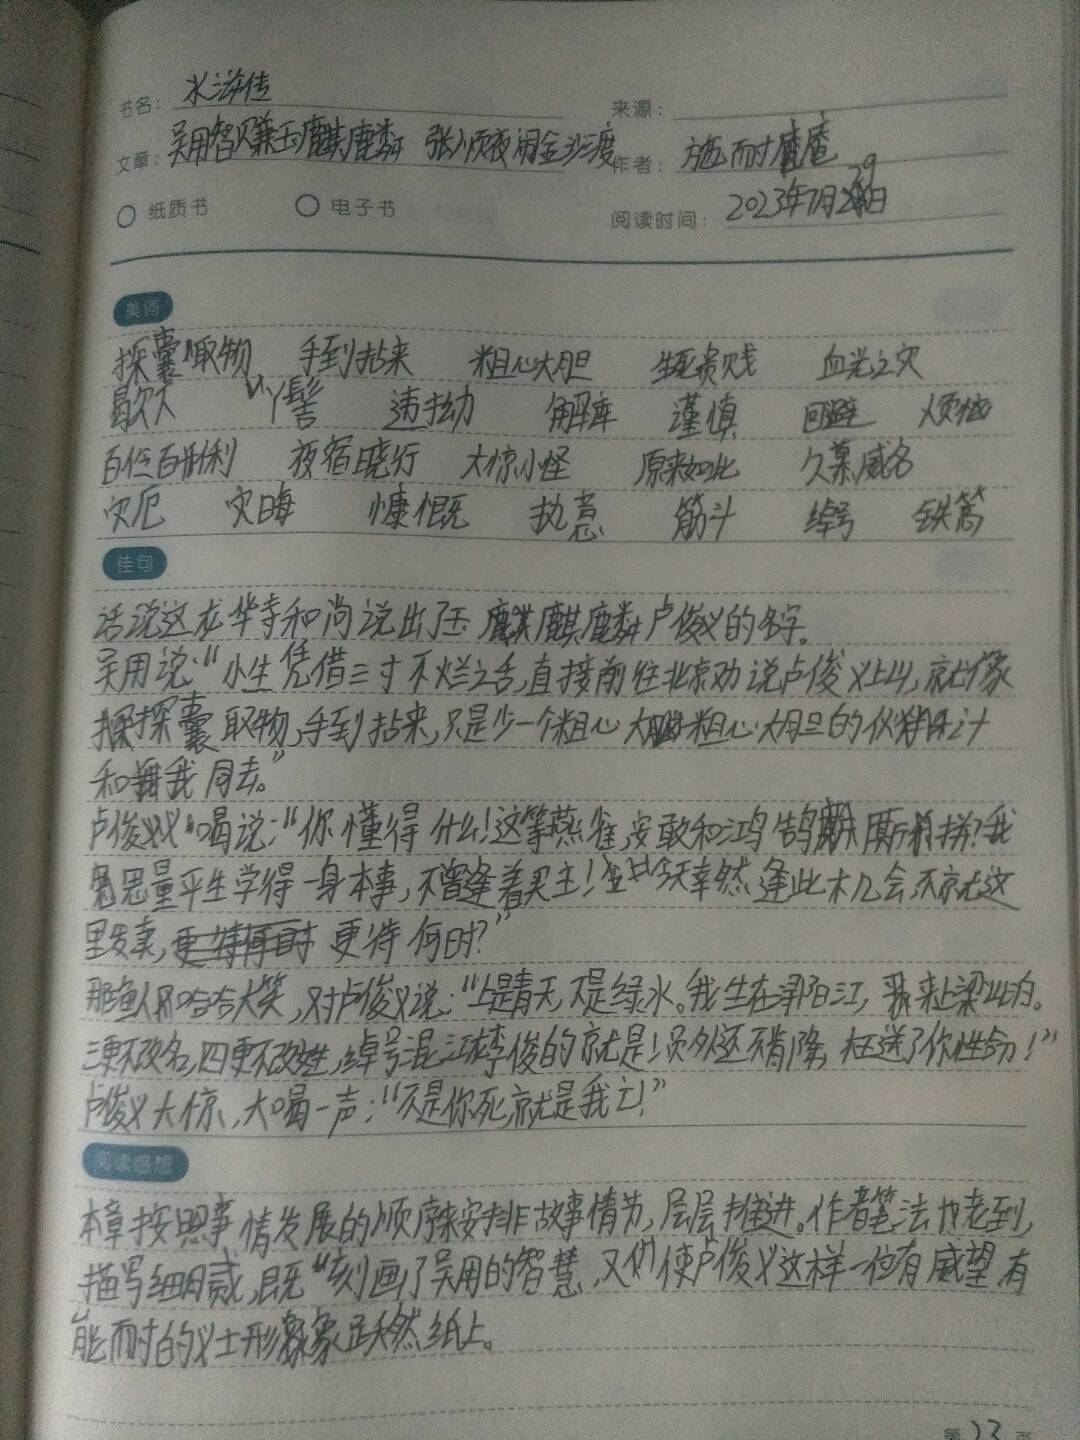 书名： 水浒传 来源：
文章： 吴用智赚玉麒麟 张顺夜闹金沙渡 作者： 施耐庵
纸质书 电子书 阅读时间： 2023年7月29日
美词
探囊取物 手到拈来 粗心大胆 生死贵贱 血光之灾
歇 丫髻 违拗 解库 谨慎 回避 烦恼
百伶百俐 夜宿晓行 大惊小怪 原来如此 久慕威名
灾厄 灾晦 慷慨 执意 筋斗 绰号 铁篙
佳句
话说这龙华寺和尚说出了玉麒麟卢俊义的名字。
吴用说：“小生凭借三寸不烂之舌，直接前往北京劝说卢俊义上山，就像
探囊取物，手到拈来，只是少一个粗心大胆的伙计
和我同去。”
卢俊义喝说：“你懂得什么！这等燕雀，安敢和鸿鹄厮拼？我
思量平生学得一身本事，不曾逢着买主！今天幸然逢此机会，不就这
里发卖，更待何时？”
那渔人哈哈大笑，对卢俊义说：“上是青天，下是绿水。我生在浔阳江，来上梁山泊。
三更不改名，四更不改姓，绰号混江龙李俊的就是！员外还不肯降，枉送了你性命！”
卢俊义大惊，大喝一声：“不是你死，就是我亡！”
阅读感想
本章按照事情发展的顺序来安排故事情节，层层推进。作者笔法也老到，
描写细腻，既刻画了吴用的智慧，又使卢俊义这样一位有威望有
能耐的义士形象跃然纸上。
第23页